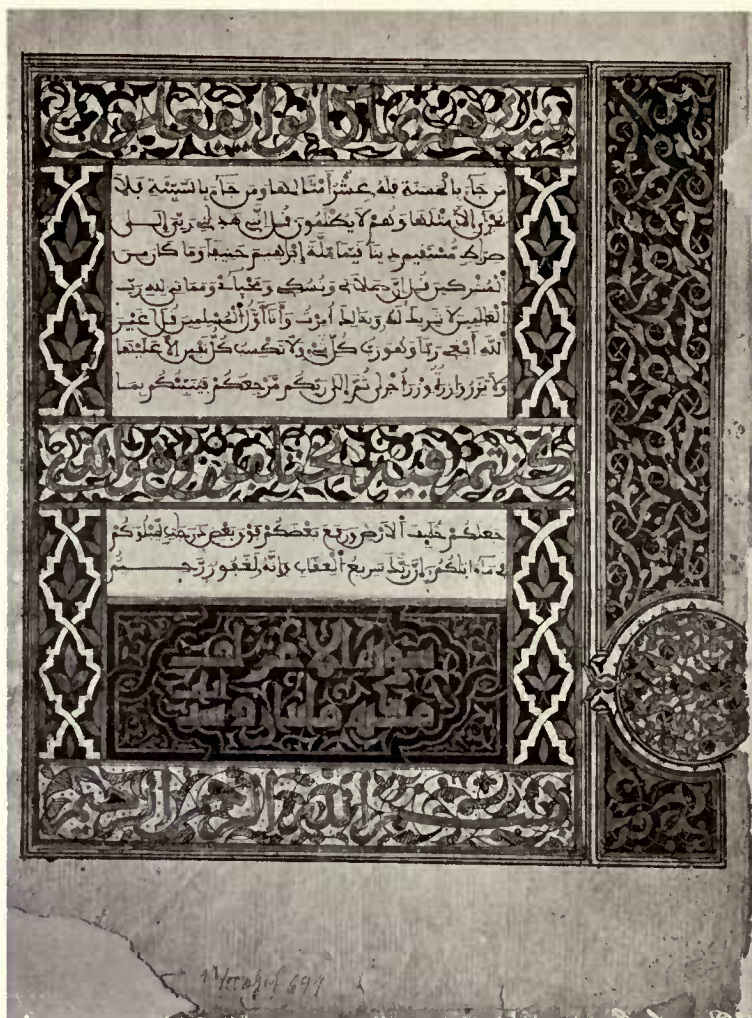 ينبئهم بما كانوا يفعلون
من جاء بالحسنة فله عشر أمثالها ومن جاء بالسيئة فلا
يجزى إلا مثلها وهم لا يظلمون قل إنني هديني ربي إلى
صراط مستقيم دينا قيما ملة إبراهيم حنيفا وما كان من
المشركين قل إن صلاتي ونسكي ومحياي ومماتي لله رب
العلمين لا شريك له وبذلك أمرت وأنا أول المسلمين قل أغير
الله أبغي ربا وهو رب كل شيء ولا تكسب كل نفس إلا عليها
ولا تزر وازرة وزر أخرى ثم إلى ربكم مرجعكم فينبئكم بما
كنتم فيه تختلفون وهو الذي
جعلكم خليف الارض ورفع بعضكم فوق بعض درجت ليبلوكم
في ما ءاتيكم إن ربك سريع العقاب وإنه لغفور رحيم
سورة الاعراف
مكية مايتان وست
بسم الله الرحمن الرحيم